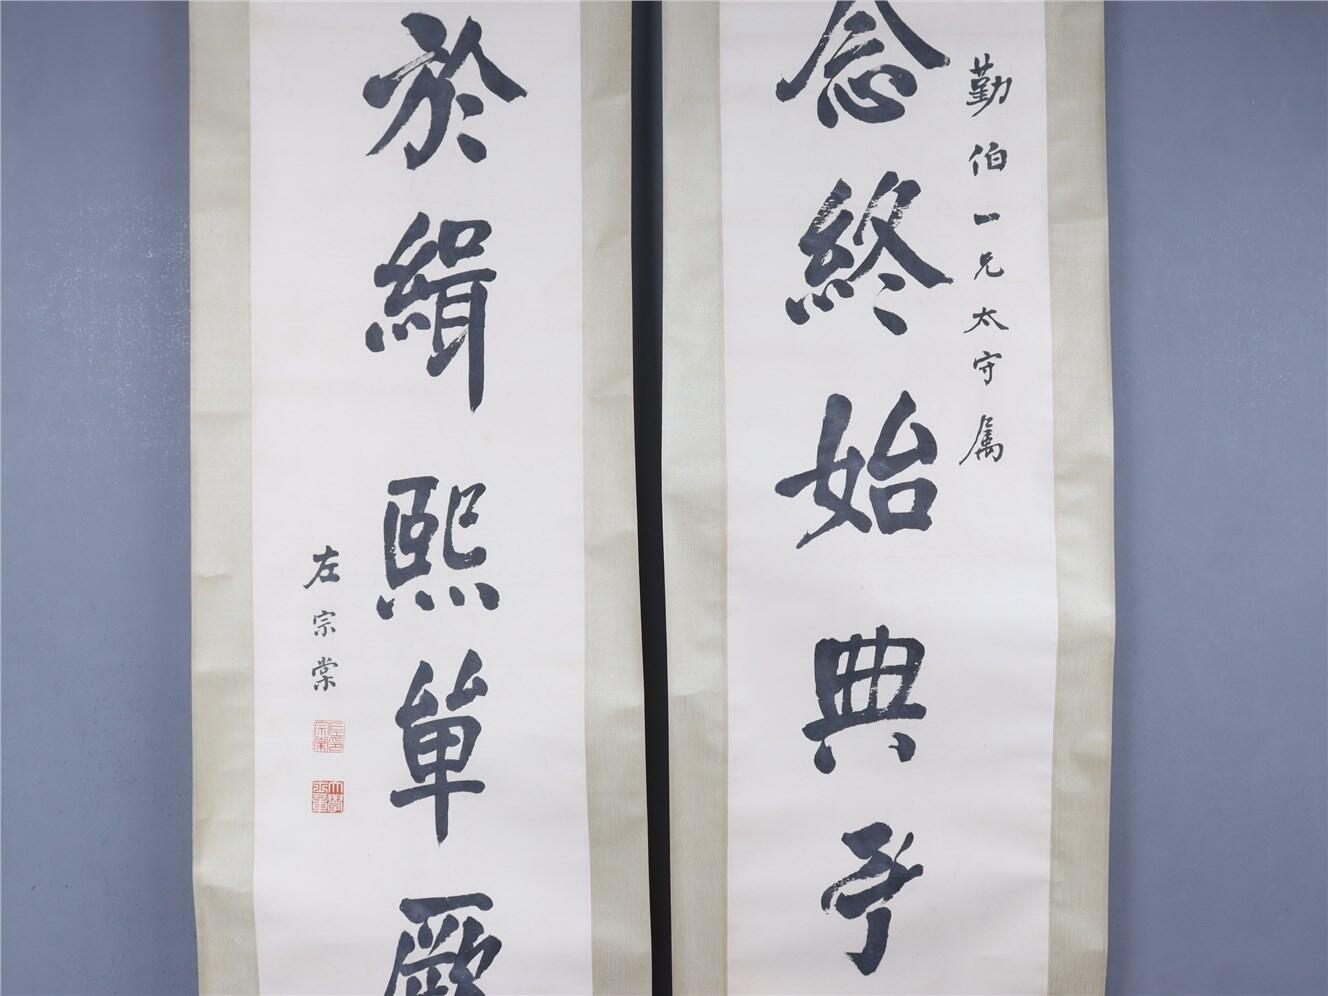 勤伯一兄太守属
念終始典予
於緝熙單厥
左宗棠